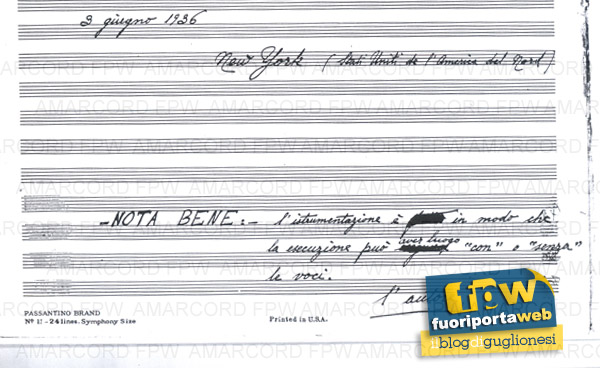 3 giugno 1936
New York (Stati Uniti de l'America del Nord)
- NOTA BENE:- l'istrumentazione è in modo che
la esecuzione può aver luogo "con" o "senza"
le voci.
l'
PASSANTINO BRAND
Nº 11 - 24 lines. Symphony Size
Printed in U.S.A.
fpw
fuoriportaweb
il blog di guglionesi
AMARCORD FPW AMARCORD FPW AMARCORD FPW AMARCORD FPW